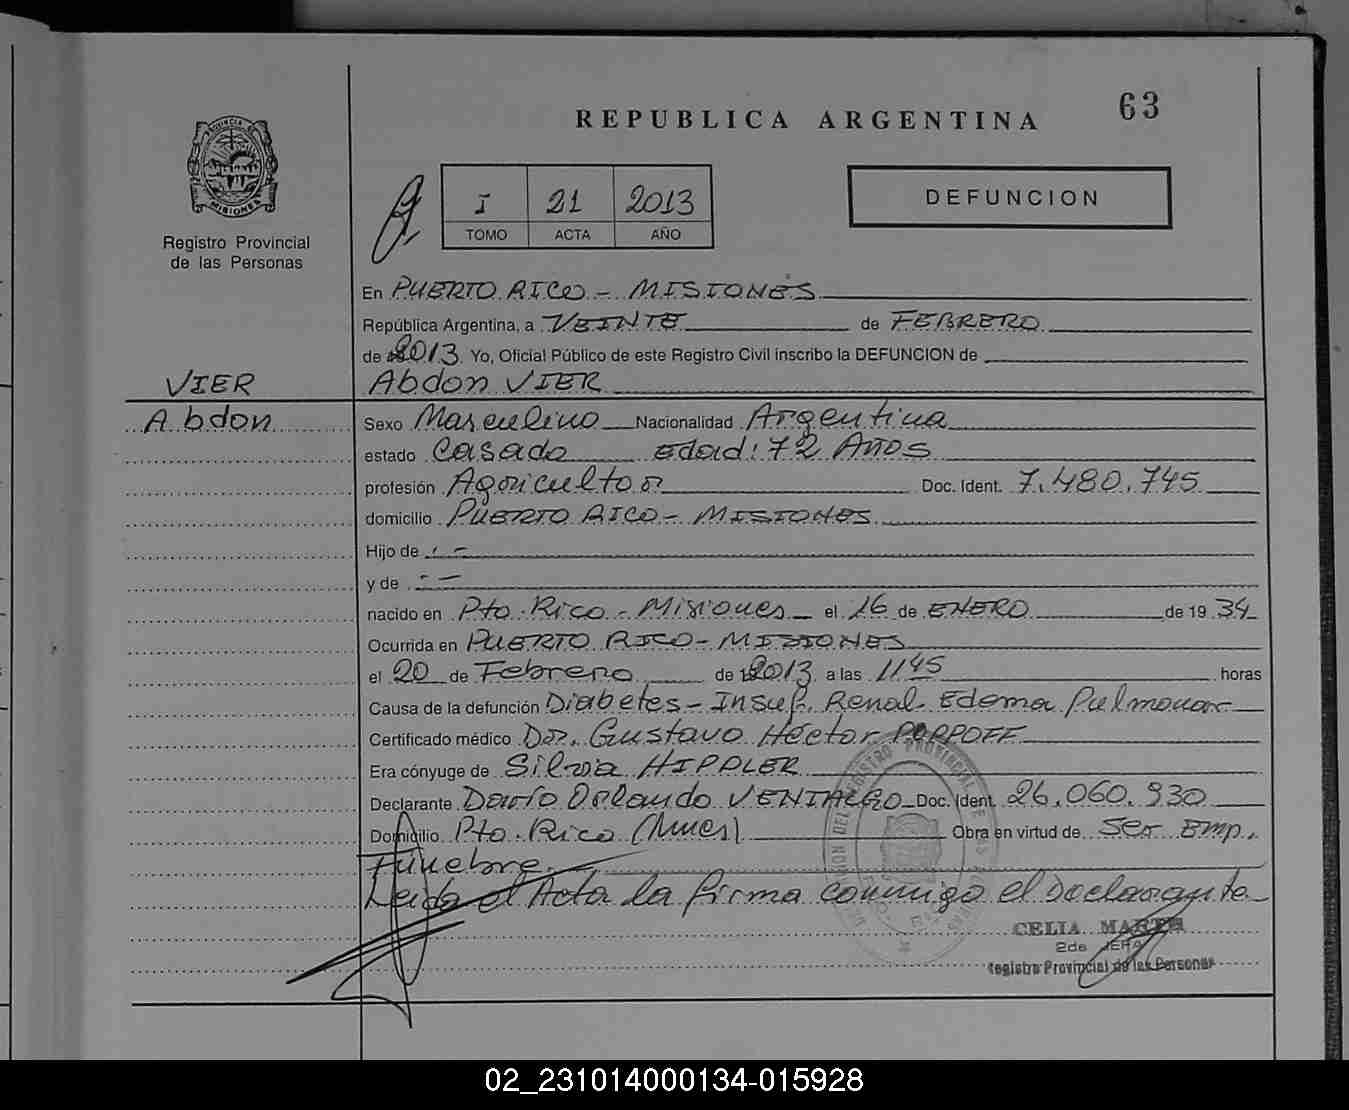 63
REPUBLICA ARGENTINA
PROVINCIA DE
MISIONES
Registro Provincial
de las Personas
I 21 2013
TOMO ACTA AÑO
DEFUNCION
En PUERTO RICO - MISIONES
República Argentina, a VEINTE de FEBRERO
de 2013 Yo, Oficial Público de este Registro Civil inscribo la DEFUNCION de
VIER
Abdon VIER
Abdon
Sexo Masculino Nacionalidad Argentina
estado Casado Edad: 72 Años
profesión Agricultor Doc. Ident. 7.480.745
domicilio PUERTO RICO - MISIONES
Hijo de . -
y de . -
nacido en Pto. Rico - Misiones el 16 de ENERO de 19 34
Ocurrida en PUERTO RICO - MISIONES
el 20 de Febrero de 2013 a las 1145 horas
Causa de la defunción Diabetes - Insuf. Renal - Edema Pulmonar
Certificado médico Dor. Gustavo Héctor POPPOFF
Era cónyuge de Silvia HIPPLER
Declarante Darío Orlando VENIALGO Doc. Ident. 26.060.930
Domicilio Pto. Rico (Mnes) Obra en virtud de Ser Emp.
Funebre.
Leida el Acta la firma conmigo el Declarante
CELIA MARTH
2de JEFA
Registro Provincial de las Personas
02_231014000134-015928